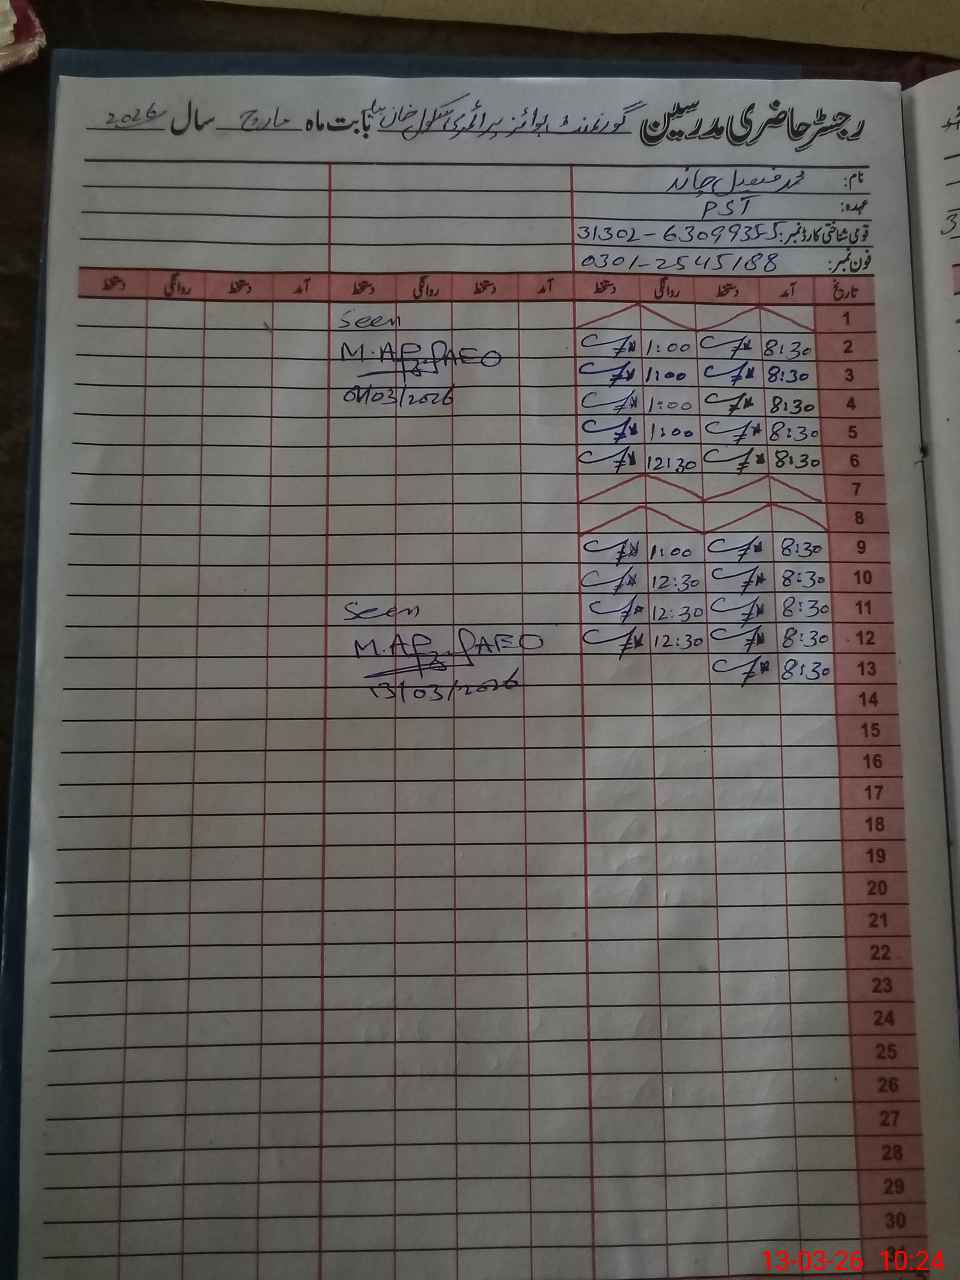 رجسٹر حاضری مدرسین گورنمنٹ بوائز پرائمری سکول خان بیلہ بابت ماہ مارچ سال 2026
نام: محمد فیصل چاند
عہدہ: PST
قومی شناختی کارڈ نمبر: 31302-6309935-5
فون نمبر: 0301-2545188
تاریخ آمد دستخط روانگی دستخط آمد دستخط روانگی دستخط آمد دستخط روانگی دستخط
1 Seen
2 8:30 1:00 M.A
3 8:30 1:00 AEO
4 8:30 1:00 04/03/2026
5 8:30 1:00
6 8:30 12:30
7
8
9 8:30 1:00
10 8:30 12:30
11 8:30 12:30 Seen
12 8:30 12:30 M.A AEO
13 8:30 13/03/2026
14
15
16
17
18
19
20
21
22
23
24
25
26
27
28
29
30
31
13-03-26 10:24